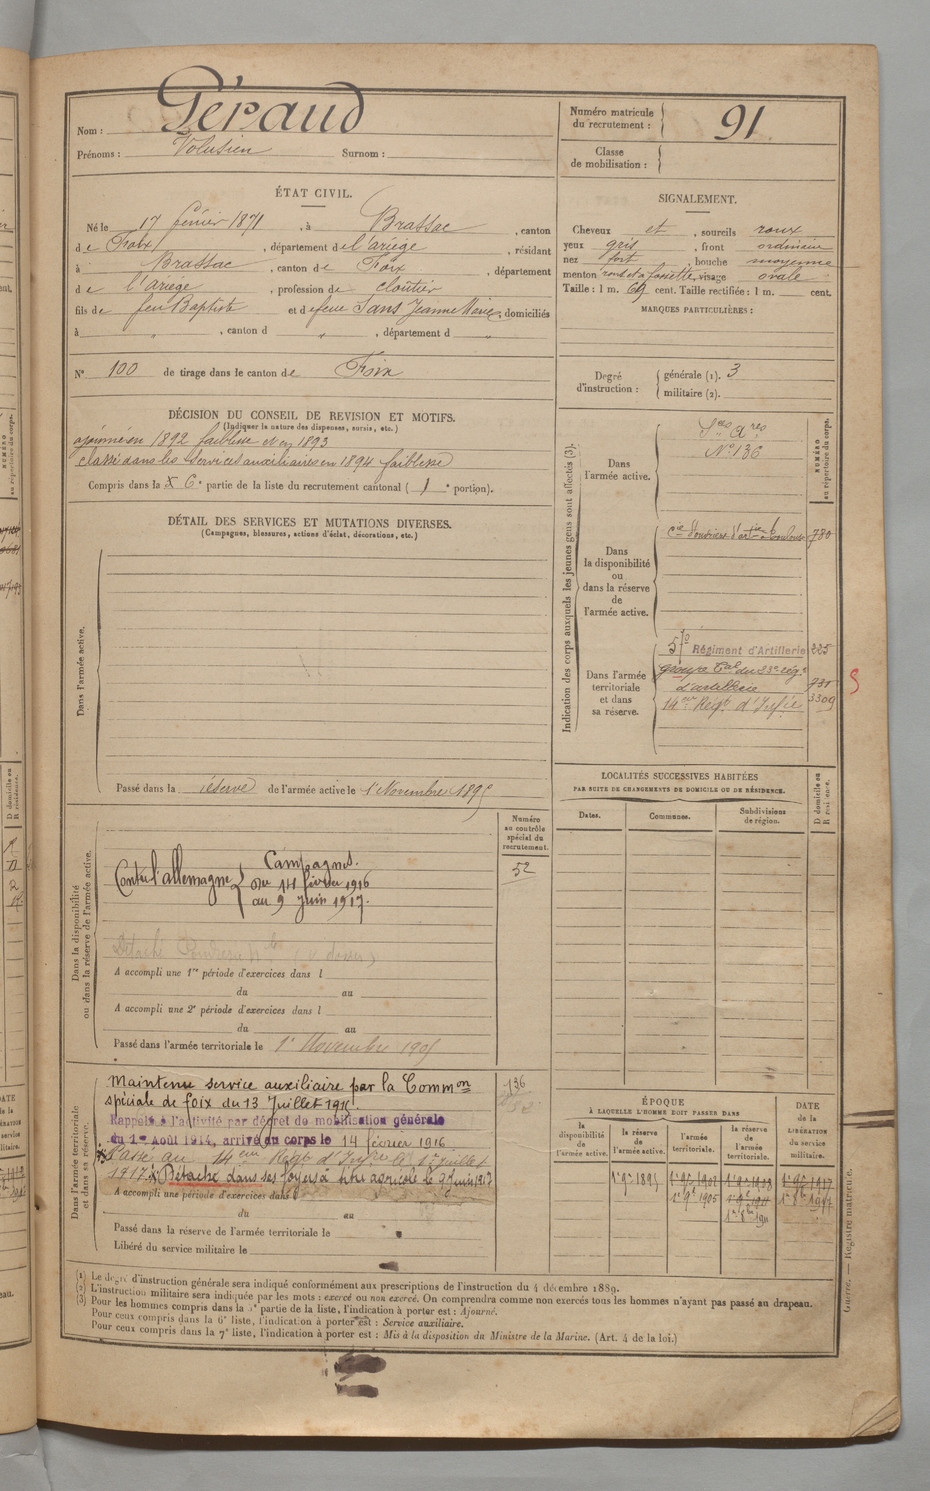 Nom : Géraud
Prénoms : Volusien Surnom :
Numéro matricule du recrutement : 91
Classe de mobilisation :
ÉTAT CIVIL.
Né le 17 février 1871, à Brassac, canton
de Foix, département de l'ariège, résidant
à Brassac, canton de Foix, département
de l'ariège, profession de cloutier
fils de feu Baptiste et de feue Sans Jeanne Marie, domiciliés
à " , canton d " , département d "
N° 100 de tirage dans le canton de Foix
SIGNALEMENT.
Cheveux et, sourcils roux
yeux gris, front ordinaire
nez fort, bouche moyenne
menton rond et à fossette, visage ovale
Taille : 1 m. 69 cent. Taille rectifiée : 1 m. cent.
MARQUES PARTICULIÈRES :
Degré d'instruction : générale (1). 3
militaire (2).
DÉCISION DU CONSEIL DE REVISION ET MOTIFS.
(Indiquer la nature des dispenses, sursis, etc.)
ajourné en 1892 faiblesse et en 1893
classé dans les services auxiliaires en 1894 faiblesse
Compris dans la 6e partie de la liste du recrutement cantonal (1e portion).
DÉTAIL DES SERVICES ET MUTATIONS DIVERSES.
(Campagnes, blessures, actions d'éclat, décorations, etc.)
Dans l'armée active.
Passé dans la réserve de l'armée active le 1er Novembre 1895
Indication des corps auxquels les jeunes gens sont affectés (3).
NUMÉRO au répertoire du corps.
Dans l'armée active.
Ses Ares
N° 136
Dans la disponibilité ou dans la réserve de l'armée active.
Cie d'ouvriers d'artie à Toulouse 780
Dans l'armée territoriale et dans sa réserve.
57e Régiment d'Artillerie 225
groupe tal du 23e régt
d'artillerie 731
14me Régt d'Infie 3309
LOCALITÉS SUCCESSIVES HABITÉES
PAR SUITE DE CHANGEMENTS DE DOMICILE OU DE RÉSIDENCE.
Dates. Communes. Subdivisions de région. D domicile ou R résidence.
Numéro au contrôle spécial du recrutement.
52
Dans la disponibilité ou dans la réserve de l'armée active.
Campagnes.
Contre l'allemagne du 14 février 1916
au 9 Juin 1917.
Détaché Poudrerie
A accompli une 1re période d'exercices dans l
du au
A accompli une 2e période d'exercices dans l
du au
Passé dans l'armée territoriale le 1er Novembre 1905
Dans l'armée territoriale et dans sa réserve.
Maintenu service auxiliaire par la Common
spéciale de foix du 13 Juillet
136
Rappelé à l'activité par décret de mobilisation générale
du 1er Août 1914, arrivé au corps le 14 février 1916
Passé au 14eme Régt d'Infrie le 1er juillet
1917. Détaché dans ses foyers à titre agricole le 9 Juin 1917
A accompli une période d'exercices dans l
du au
Passé dans la réserve de l'armée territoriale le
Libéré du service militaire le
ÉPOQUE
À LAQUELLE L'HOMME DOIT PASSER DANS
la disponibilité de l'armée active. la réserve de l'armée active. l'armée territoriale. la réserve de l'armée territoriale.
DATE de la LIBÉRATION du service militaire.
1 9e 1895
1 9e 1905
(1) Le degré d'instruction générale sera indiqué conformément aux prescriptions de l'instruction du 4 décembre 1889.
(2) L'instruction militaire sera indiquée par les mots : exercé ou non exercé. On comprendra comme non exercés tous les hommes n'ayant pas passé au drapeau.
(3) Pour les hommes compris dans la 5e partie de la liste, l'indication à porter est : Ajourné.
Pour ceux compris dans la 6e liste, l'indication à porter est : Service auxiliaire.
Pour ceux compris dans la 7e liste, l'indication à porter est : Mis à la disposition du Ministre de la Marine. (Art. 4 de la loi.)
Guerre. — Registre matricule.